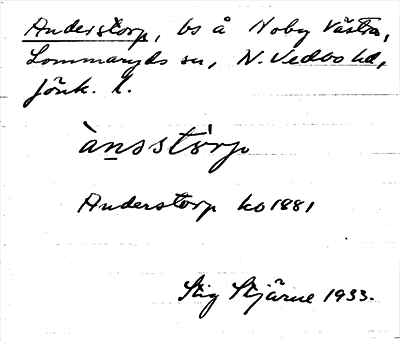 Anderstorp, bs å Noby Västra,
Lommaryds sn, N. Vedbo hd,
Jönk. l.
ànsstòrp
Anderstorp ko 1881
Stig Stjärne 1933.